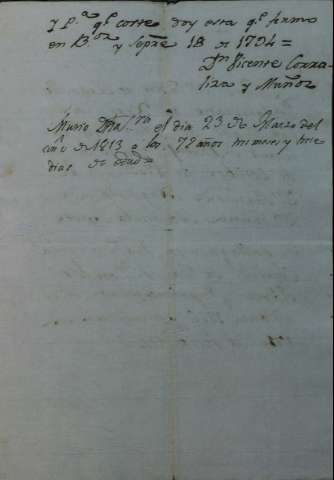 y P.ª qᵉ corte doy esta qᵉ firmo
en B.ᵒˢ y Sepᵗʳᵉ 18 de 1794 =
Dⁿ Vicente Corra-
liza y Muñoz
Murio Dha Sʳᵃ el dia 23 de Marzo del
año de 1813 a los 78 años tres meses y trece
dias de edad =